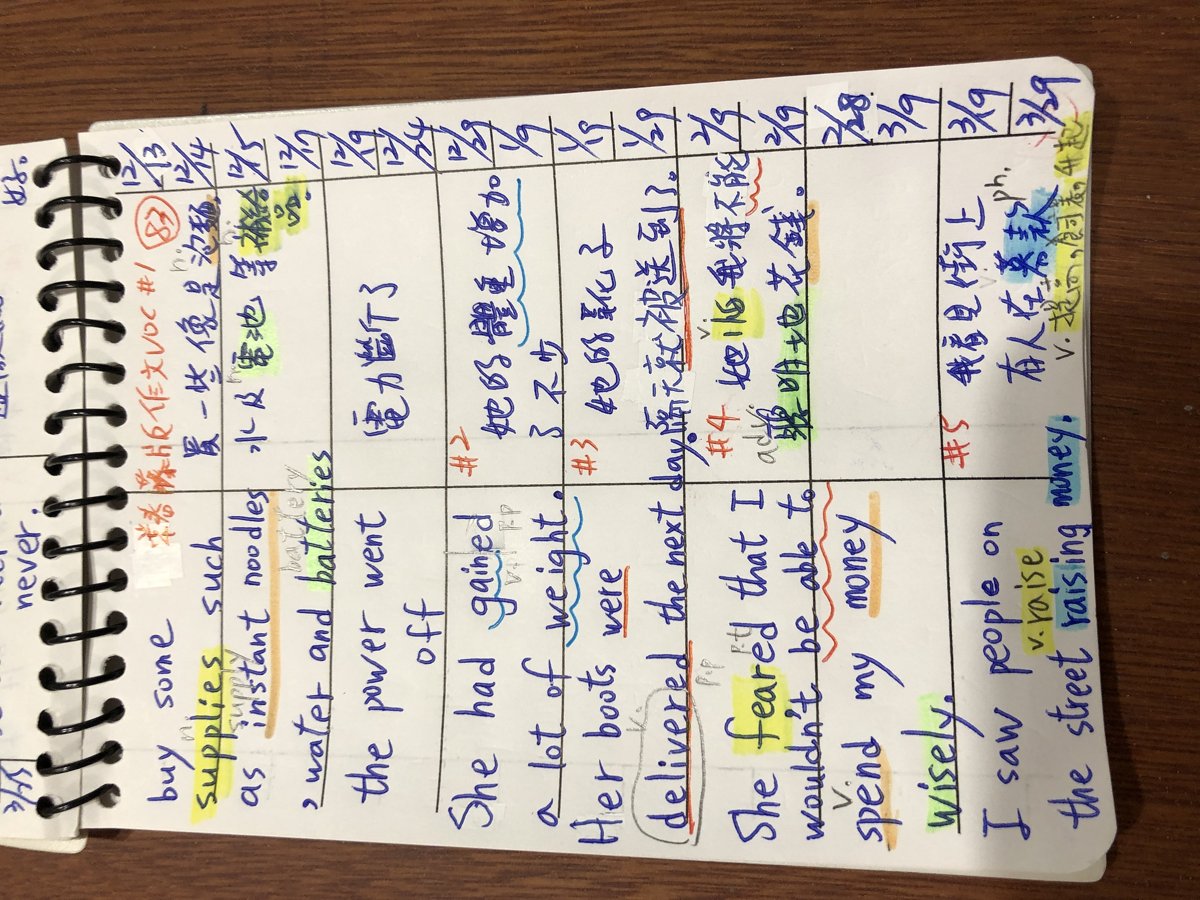 never.
3/15
菜藤版作文VOC #1
83
12/13
12/14
12/15
12/17
12/19
12/24
12/29
1/9
1/19
1/29
2/9
2/19
2/28
3/9
3/19
3/29
buy some
n.
supplies such
supply
as instant noodles
battery
, water and batteries
買一些像是泡麵,
n.
水及電池等補給
品.
the power went
off
電力斷了
#2
She had gained
v.
p.p
a lot of weight.
她的體重增加
了不少
#3
Her boots were
v.
delivered the next day.
p.p
她的靴子
隔天就被送到了。
#4
She feared that I
p.t
wouldn't be able to
v.
spend my money
wisely.
v.
她怕我將不能
adv.
聰明地花錢。
#5
I saw people on
v. raise
the street raising money.
我看見街上
ph.
有人在募款
v. 提高,